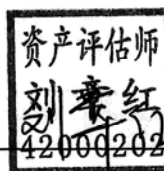 资产评估师
刘红
42000202